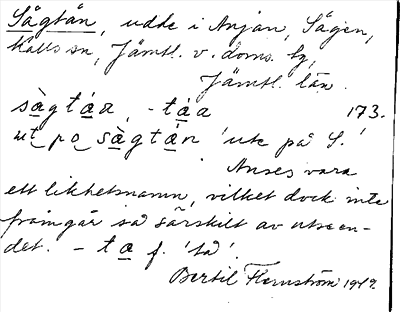 Sågtån, udde i Anjan, Sågen,
Kalls sn, Jämtl. v. doms. tg,
Jämtl. län.
sàgtáa, -táa 173.
ut po sàgtán 'ute på S.'
Anses vara
ett likhetsnamn, vilket dock inte
framgår så särskilt av utseen-
det. - ta f. 'tå'.
Bertil Flemström 1947.